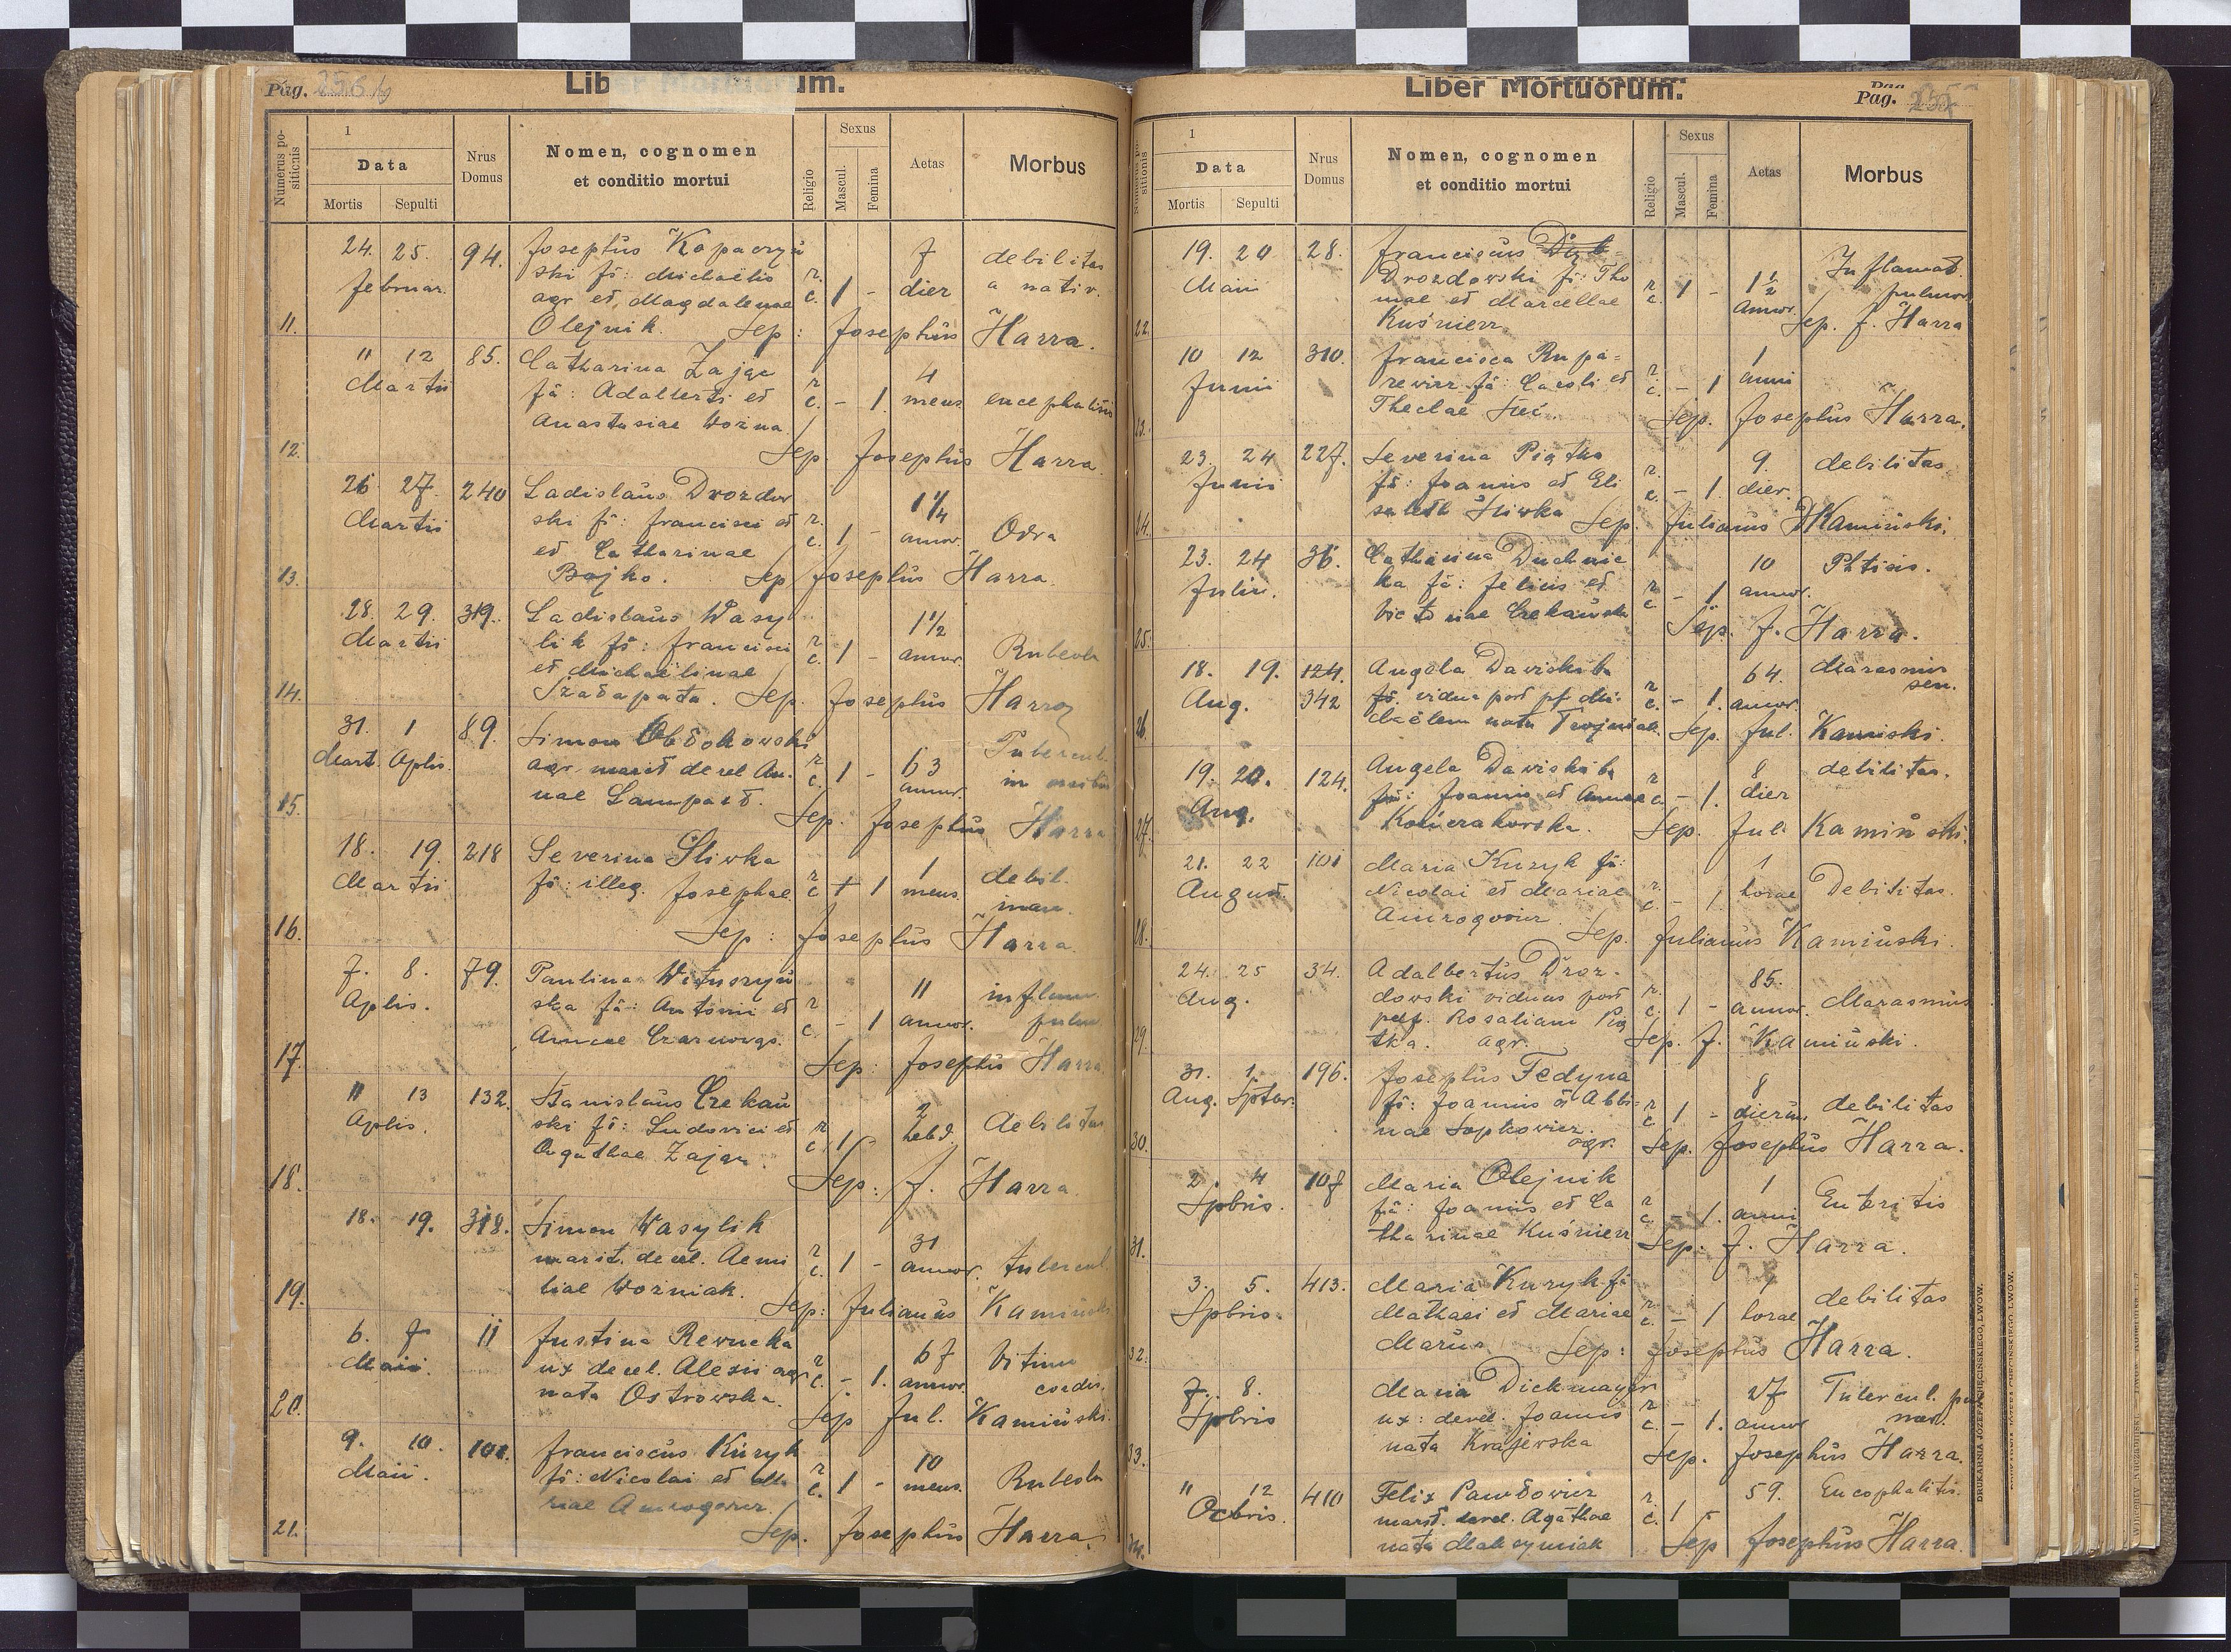 Pag. 256
Liber Mortuorum.
Numerus positionis
1
Data
Mortis
Sepulti
Nrus Domus
Nomen, cognomen
et conditio mortui
Religio
Sexus
Mascul.
Femina
Aetas
Morbus
24. 25. 94. Josephus Kopaczyń
ski fs: Michaelis
Februar. r. c. 1 - 7 dier debilitas a nativ.
agr et Magdalenae
11. Olejnik. Sep: Josephus Harra.
11 12 85. Catharina Zając
Martii fa: Adalberti et r. c. - 1. 4 mens encephalitis
Anastasiae Woźna
12. Sep. Josephus Harra.
26 27. 240 Ladislaus Drozdow
Martii ski fs: Francisci et r. c. 1 - 1 1/4 annor. Odra
et Catharinae
13. Bojko. Sep Josephus Harra.
28. 29. 319. Ladislaus Wasy
Martii lik fs: Francisci r. c. 1 - 1 1/2 annor. Rubeola
et Michaelinae
14. Sep. Josephus Harra
31. 1 89. Simon
Mart. Aplis. agr. marit derel An- r. c. 1 - 63 annor. Tubercul. in
15. nae Lampart. Sep. Josephus Harra
18. 19. 218 Severina Śliwka
Martii fs: illeg. Josephae r. c. 1 1 mens. debil.
16. Sep: Josephus Harra.
7. 8. 79. Paulina Wituszyń
Aplis. ska fa: Antonii et r. c. - 1 11 annor. inflam. pulm.
Annae
17. Sep: Josephus Harra.
11 13 132. Stanislaus Czekań
Aplis. ski fs: Ludovici et r. c. 1 - 2 hebd. debilitas
Agathae Zając.
18. Sep: J. Harra.
18. 19. 318. Simon Wasylik
marit. derel. Aemi r. c. 1 - 31 annor. tubercul.
19. liae Woźniak. Sep: Julianus Kamiński
6. 7 11 Justina Rewucka
Maii. ux derel. Alexii agr r. c. - 1. 67 annor. Vitium cordis.
20. nata Ostrowska. Sep Jul. Kamiński.
9. 10. 101. Franciscus Kuzyk
Maii. fs: Nicolai et Ma r. c. 1 - 10 mens. Rubeola
riae Amrogowicz.
21. Sep. Josephus Harra.
Pag. 257
Liber Mortuorum.
Numerus positionis
1
Data
Mortis
Sepulti
Nrus Domus
Nomen, cognomen
et conditio mortui
Religio
Sexus
Mascul.
Femina
Aetas
Morbus
19. 20 28. Franciscus
Maii Drozdowski fs: Tho r. c. 1 - 1 1/2 annor. Inflamat. pulmon.
mae et Marcellae
22. Kuśnierz Sep. J. Harra
10 12 310. Francisca Rupa-
Junii rewicz fa: Caroli et r. c. - 1 1 anni
23. Theclae Sep. Josephus Harra.
23. 24 227. Severina Piątko
Junii fs: Joannis et Eli r. c. - 1. 9. dier. debilitas
24. sabeth Śliwka Sep. Julianus Kamiński.
23. 24 36. Catharina Duchnic
Julii. ka fa: Felicis et r. c. - 1 10 annor. Phtisis.
Victoriae Czekańska
25. Sep. J. Harra.
18. 19. 124. Angela Dawiskiba
Aug. 342 vidua post pf. Mi- r. c. - 1. 64. annor. Marasmus sen.
26. chaelem nata Sep. Jul. Kamiński.
19. 20. 124. Angela Dawiskiba
Aug. fa: Joannis et Annae r. c. - 1. 8 dier debilitas.
27. Sep. Jul. Kamiński.
21. 22 101 Maria Kuzyk fa:
August. Nicolai et Mariae r. c. - 1. 1 horae Debilitas.
28. Amrogowicz. Sep. Julianus Kamiński.
24. 25 34. Adalbertus Droz-
Aug. dowski viduus post r. c. 1 - 85. annor. Marasmus
Rosaliam Pią
29. tka. agr. Sep. J. Kamiński.
31. 1. 196. Josephus Fedyna
Aug. Sptbr. fs: Joannis et Albi- r. c. 1 - 8 dierum debilitas
nae Sopkowicz.
30. agr. Sep. Josephus Harra.
2. 4 107 Maria Olejnik
Spbris. fa: Joannis et Ca r. c. - 1. 1 anni Enteritis
31. tharinae Kuśnierz Sep: J. Harra.
3. 5. 413. Maria Kuzyk fa
Spbris. Mathaei et Mariae r. c. - 1 horae debilitas
32. Sep: Josephus Harra.
7. 8. Maria Dickmayer
Spbris ux: derel. Joannis r. c. - 1. 27 annor Tubercul. pulmon.
33. nata Krajewska Sep. Josephus Harra.
11 12 410 Felix Pawłowicz
Octbris. marit. derel. Agathae r. c. 1 59. Encephalitis.
34. nata Maksymiak Sep Josephus Harra.
DRUKARNIA JÓZEFA CHĘCIŃSKIEGO, LWÓW.